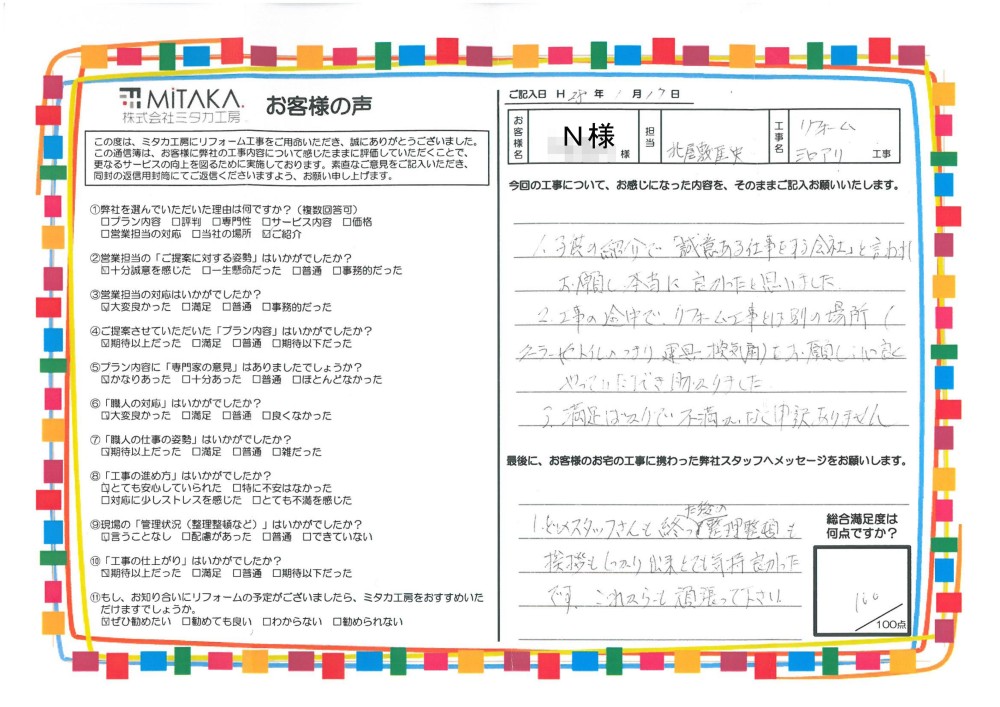 MiTAKA.
株式会社ミタカ工房
お客様の声
この度は、ミタカ工房にリフォーム工事をご用命いただき、誠にありがとうございました。
この通信簿は、お客様に弊社の工事内容について感じたままに評価していただくことで、
更なるサービスの向上を図るために実施しております。素直なご意見をご記入いただき、
同封の返信用封筒にてご返信くださいますよう、お願い申し上げます。
①弊社を選んでいただいた理由は何ですか？（複数回答可）
□プラン内容 □評判 □専門性 □サービス内容 □価格
□営業担当の対応 □当社の場所 ☑ご紹介
②営業担当の「ご提案に対する姿勢」はいかがでしたか？
☑十分誠意を感じた □一生懸命だった □普通 □事務的だった
③営業担当の対応はいかがでしたか？
☑大変良かった □満足 □普通 □事務的だった
④ご提案させていただいた「プラン内容」はいかがでしたか？
☑期待以上だった □満足 □普通 □期待以下だった
⑤プラン内容に「専門家の意見」はありましたでしょうか？
☑かなりあった □十分あった □普通 □ほとんどなかった
⑥「職人の対応」はいかがでしたか？
☑大変良かった □満足 □普通 □良くなかった
⑦「職人の仕事の姿勢」はいかがでしたか？
☑期待以上だった □満足 □普通 □雑だった
⑧「工事の進め方」はいかがでしたか？
☑とても安心していられた □特に不安はなかった
□対応に少しストレスを感じた □とても不満を感じた
⑨現場の「管理状況（整理整頓など）」はいかがでしたか？
☑言うことなし □配慮があった □普通 □できていない
⑩「工事の仕上がり」はいかがでしたか？
☑期待以上だった □満足 □普通 □期待以下だった
⑪もし、お知り合いにリフォームの予定がございましたら、ミタカ工房をおすすめいた
だけますでしょうか。
☑ぜひ勧めたい □勧めても良い □わからない □勧められない
ご記入日 H 28 年 1 月 17 日
お客様名 N様 様 担当 北屋敷匡史 工事名 リフォーム
シロアリ 工事
今回の工事について、お感じになった内容を、そのままご記入お願いいたします。
1. 子供の紹介で「誠意ある仕事をする会社」と言われ
お願いし本当に良かったと思いました
2. 工事の途中で、リフォーム工事とは別の場所（
クーラーやトイレの 換気扇）もお願いし 良く
やっていただき助かりました
3. 満足ばかりで不満がなく申訳ありません
最後に、お客様のお宅の工事に携わった弊社スタッフへメッセージをお願いします。
1. どのスタッフさんも終った後の整理整頓も
挨拶もしっかり出来とても気持良かった
です、これからも頑張って下さい
総合満足度は
何点ですか？
100
／100点